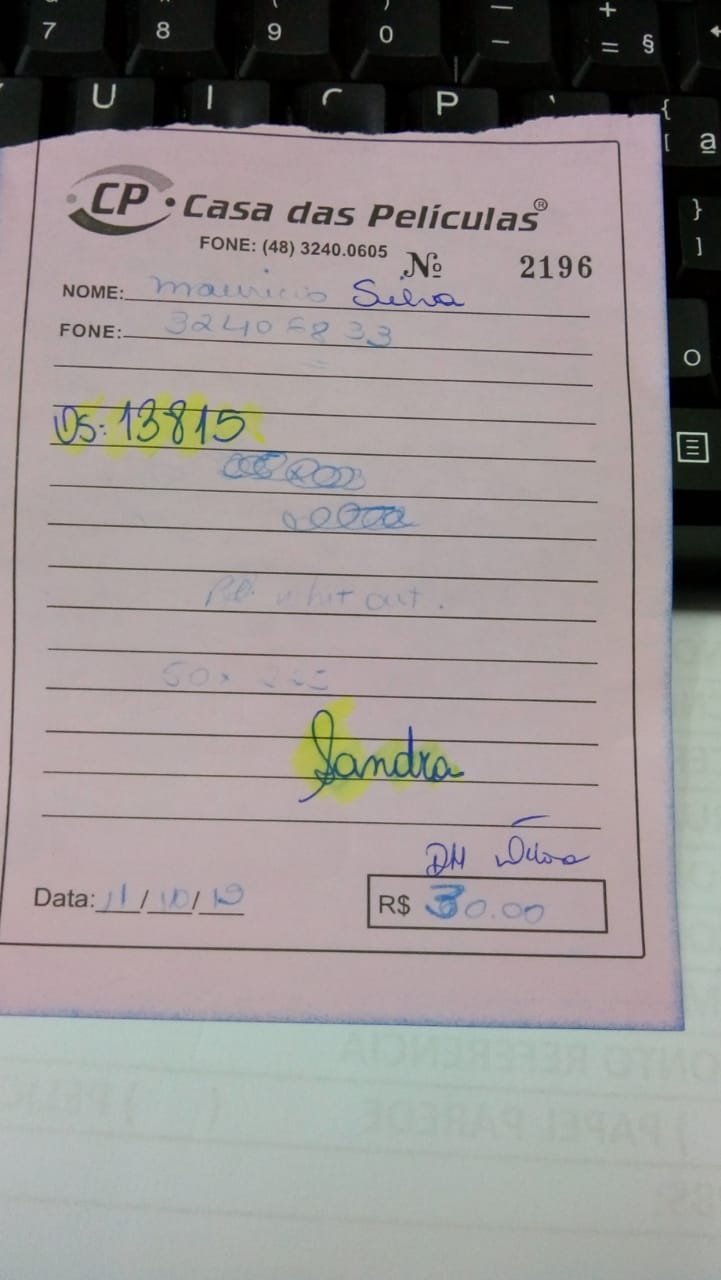 7 8 9 0 — _ + = §
U I O P ` { [ ª
} ]
CP Casa das Películas®
FONE: (48) 3240.0605
Nº 2196
NOME: Mauricio Silva
FONE: 32406833
OS: 13815
out.
50x
Sandra
DH
Data: 11/10/19
R$ 30.00
PAPEL PAREDE